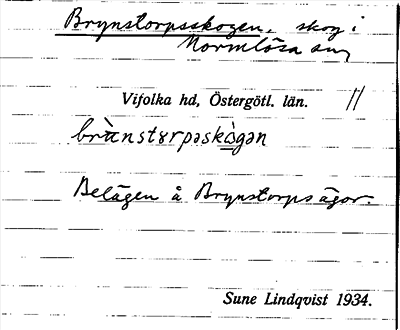 Brynstorpsskogen, skog i
Normlösa sn
Vifolka hd, Östergötl. län. 11
Belägen å Brynstorps ägor.
Sune Lindqvist 1934.